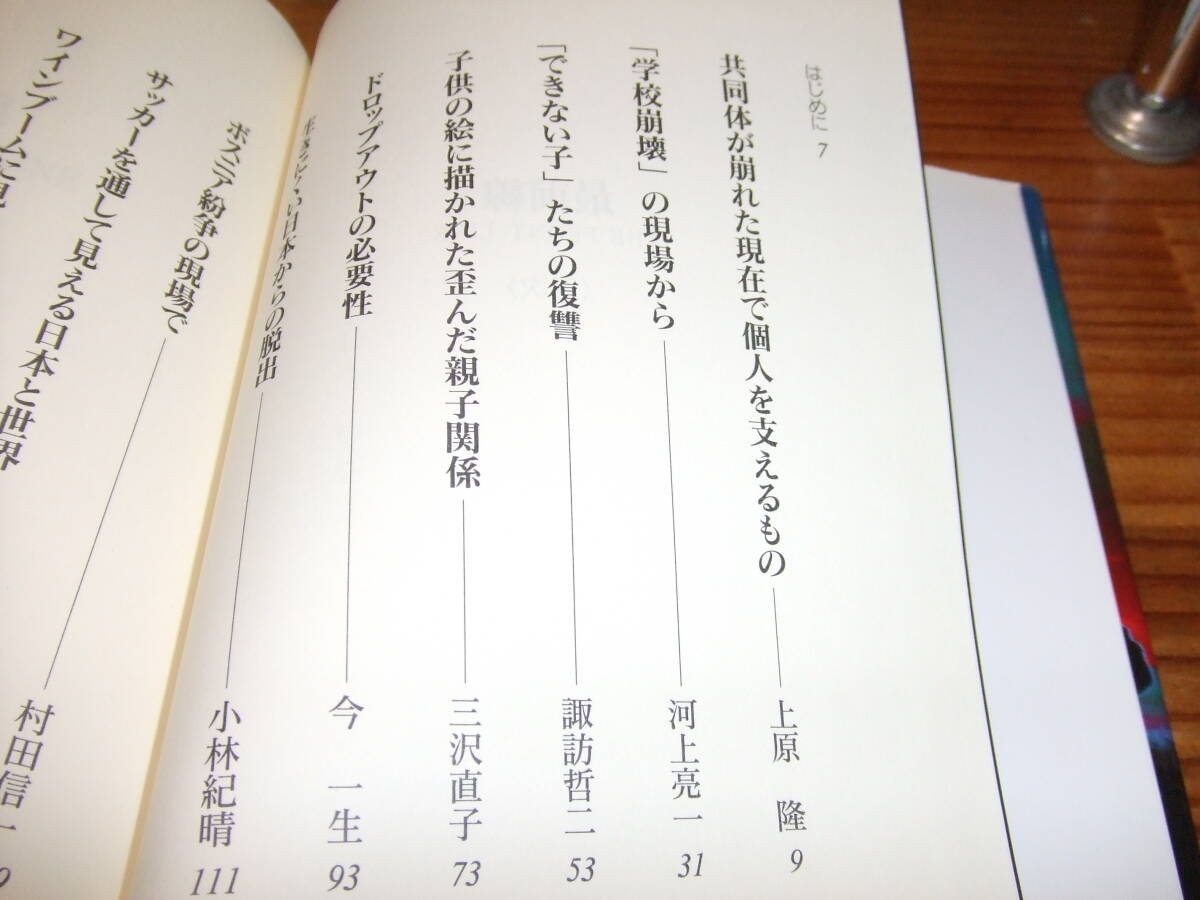 はじめに 7
共同体が崩れた現在で個人を支えるもの 上原 隆 9
「学校崩壊」の現場から 河上亮一 31
「できない子」たちの復讐 諏訪哲二 53
子供の絵に描かれた歪んだ親子関係 三沢直子 73
ドロップアウトの必要性 今 一生 93
生きにくい日本からの脱出 小林紀晴 111
ボスニア紛争の現場で
サッカーを通して見える日本と世界 村田信一
ワインブームに